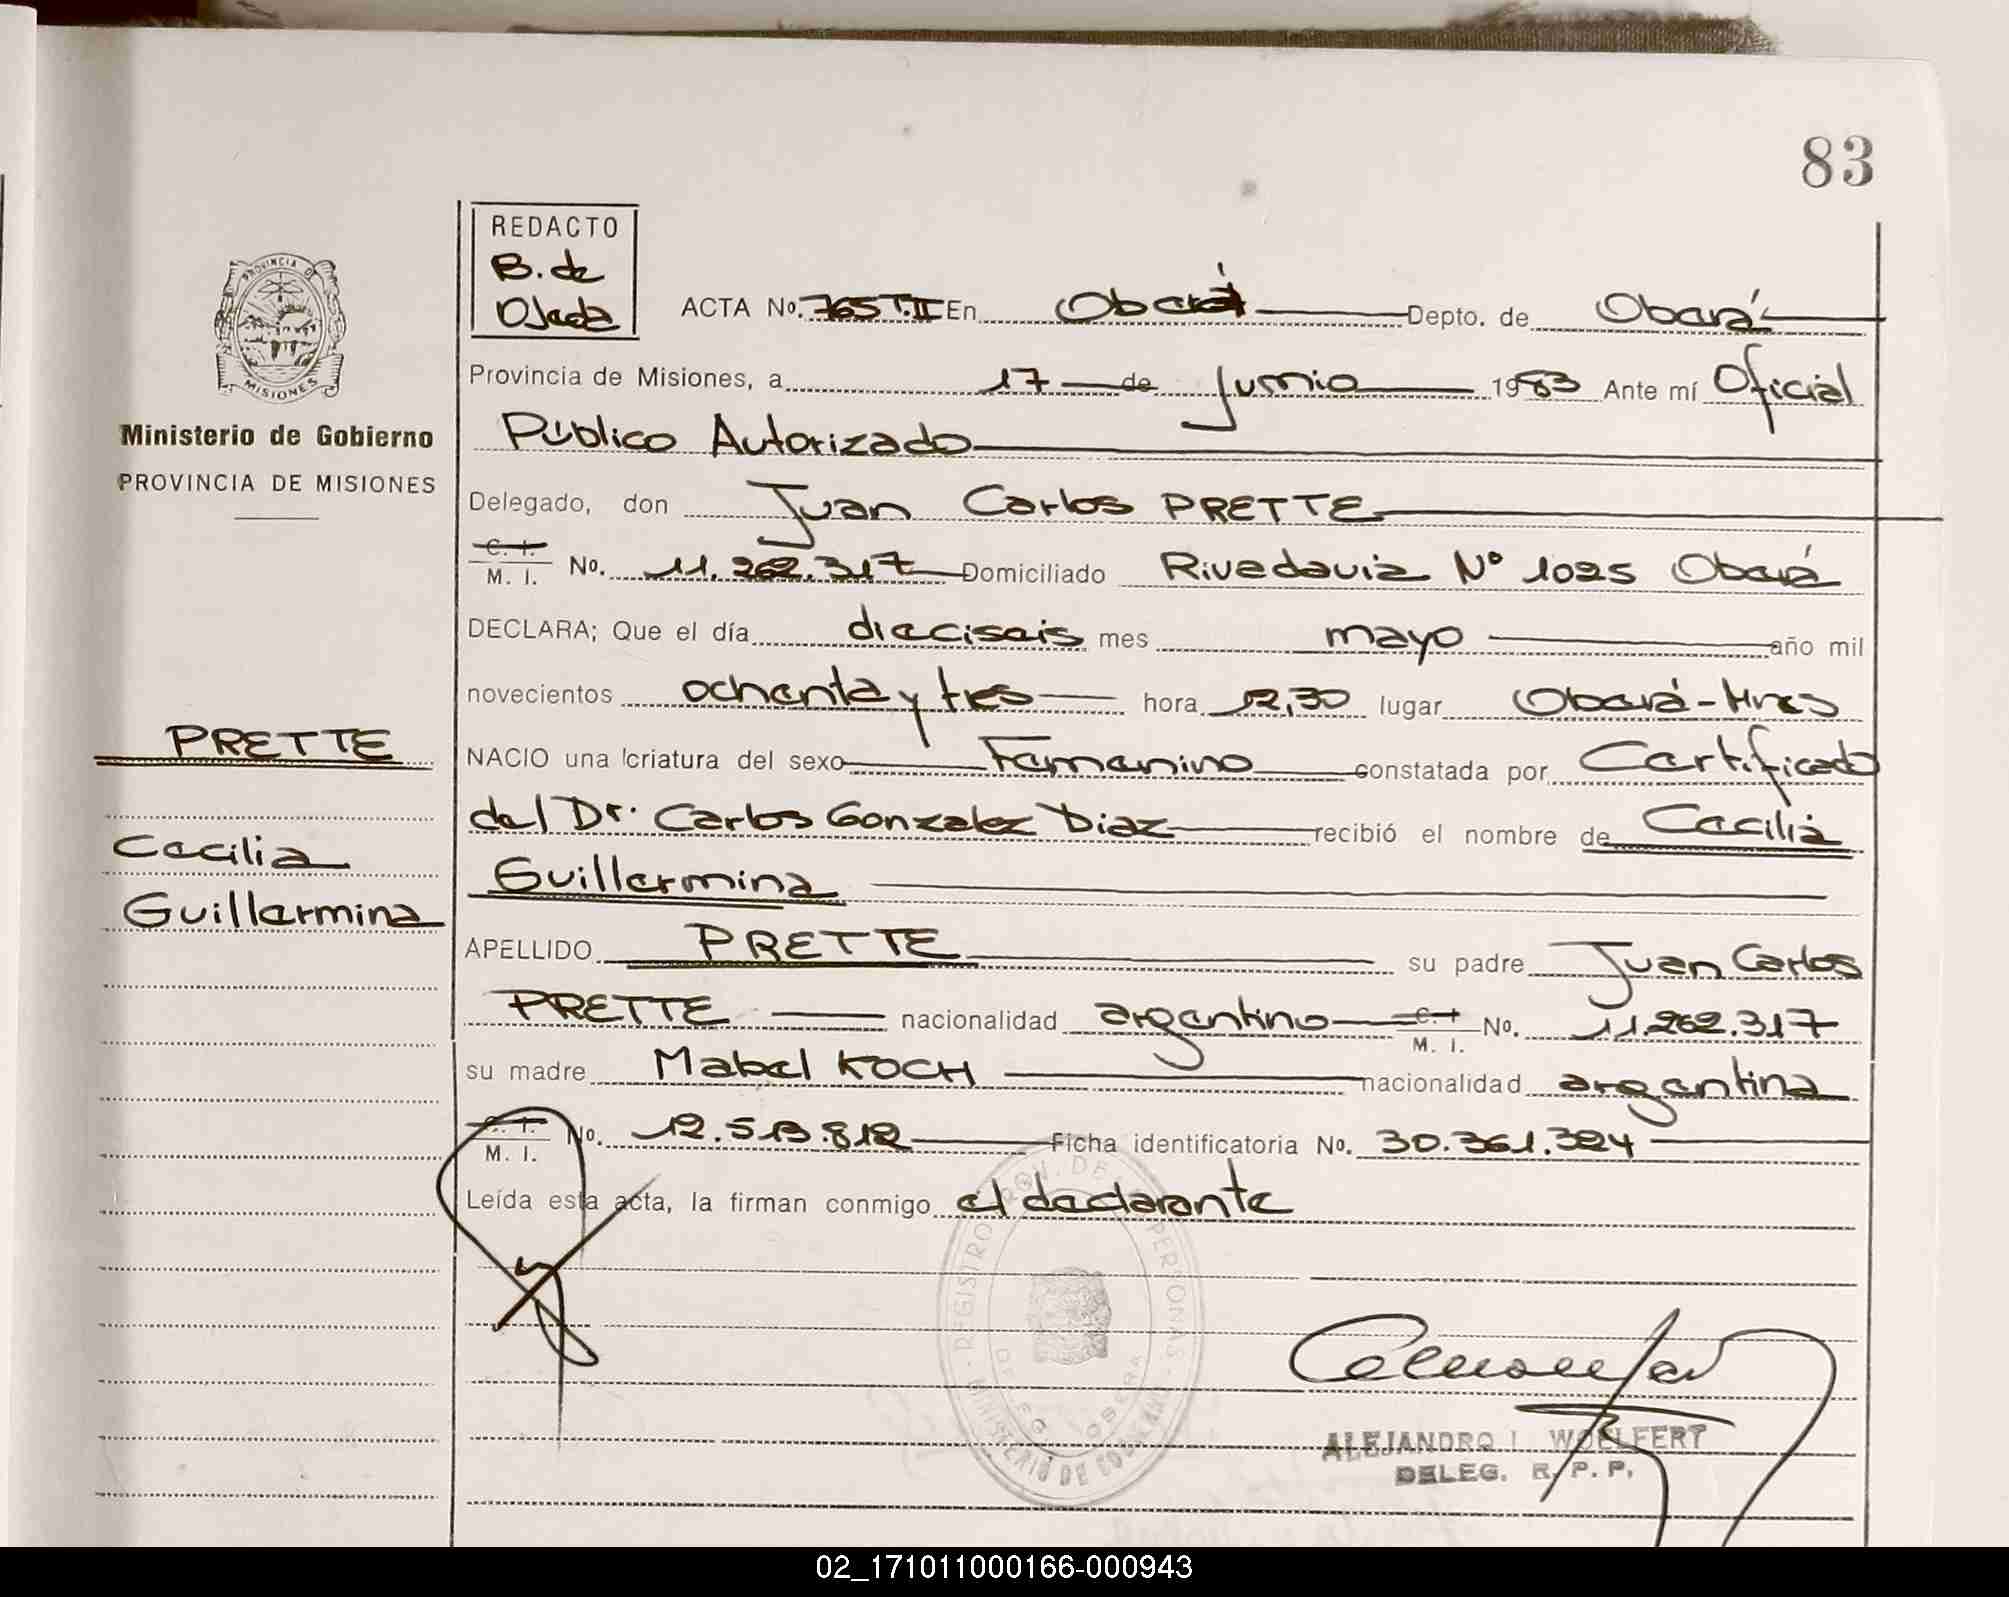 83
REDACTO
B. de
Ojeda
ACTA No. 765 T.II En Oberá Depto. de Oberá
Provincia de Misiones, a 17 de Junio 1983 Ante mí Oficial
Público Autorizado
Delegado, don Juan Carlos PRETTE
C. I.
M. I. No. 11.262.317 Domiciliado Rivadavia Nº 1025 Oberá
DECLARA; Que el día dieciseis mes mayo año mil
novecientos ochenta y tres hora 12,30 lugar Oberá-Mnes
NACIO una criatura del sexo Femenino constatada por Certificado
del Dr. Carlos Gonzalez Diaz recibió el nombre de Cecilia
Guillermina
APELLIDO PRETTE su padre Juan Carlos
PRETTE nacionalidad argentino C. I. M. I. No. 11.262.317
su madre Mabel KOCH nacionalidad argentina
C. I.
M. I. No. 12.513.812 Ficha identificatoria No. 30.361.324
Leída esta acta, la firman conmigo el declarante
PROVINCIA DE
MISIONES
Ministerio de Gobierno
PROVINCIA DE MISIONES
PRETTE
Cecilia
Guillermina
REGISTRO PROV. DE LAS PERSONAS
MINISTERIO DE GOBIERNO
OBERA
ALEJANDRO I. WOELFERT
DELEG. R. P. P.
02_171011000166-000943